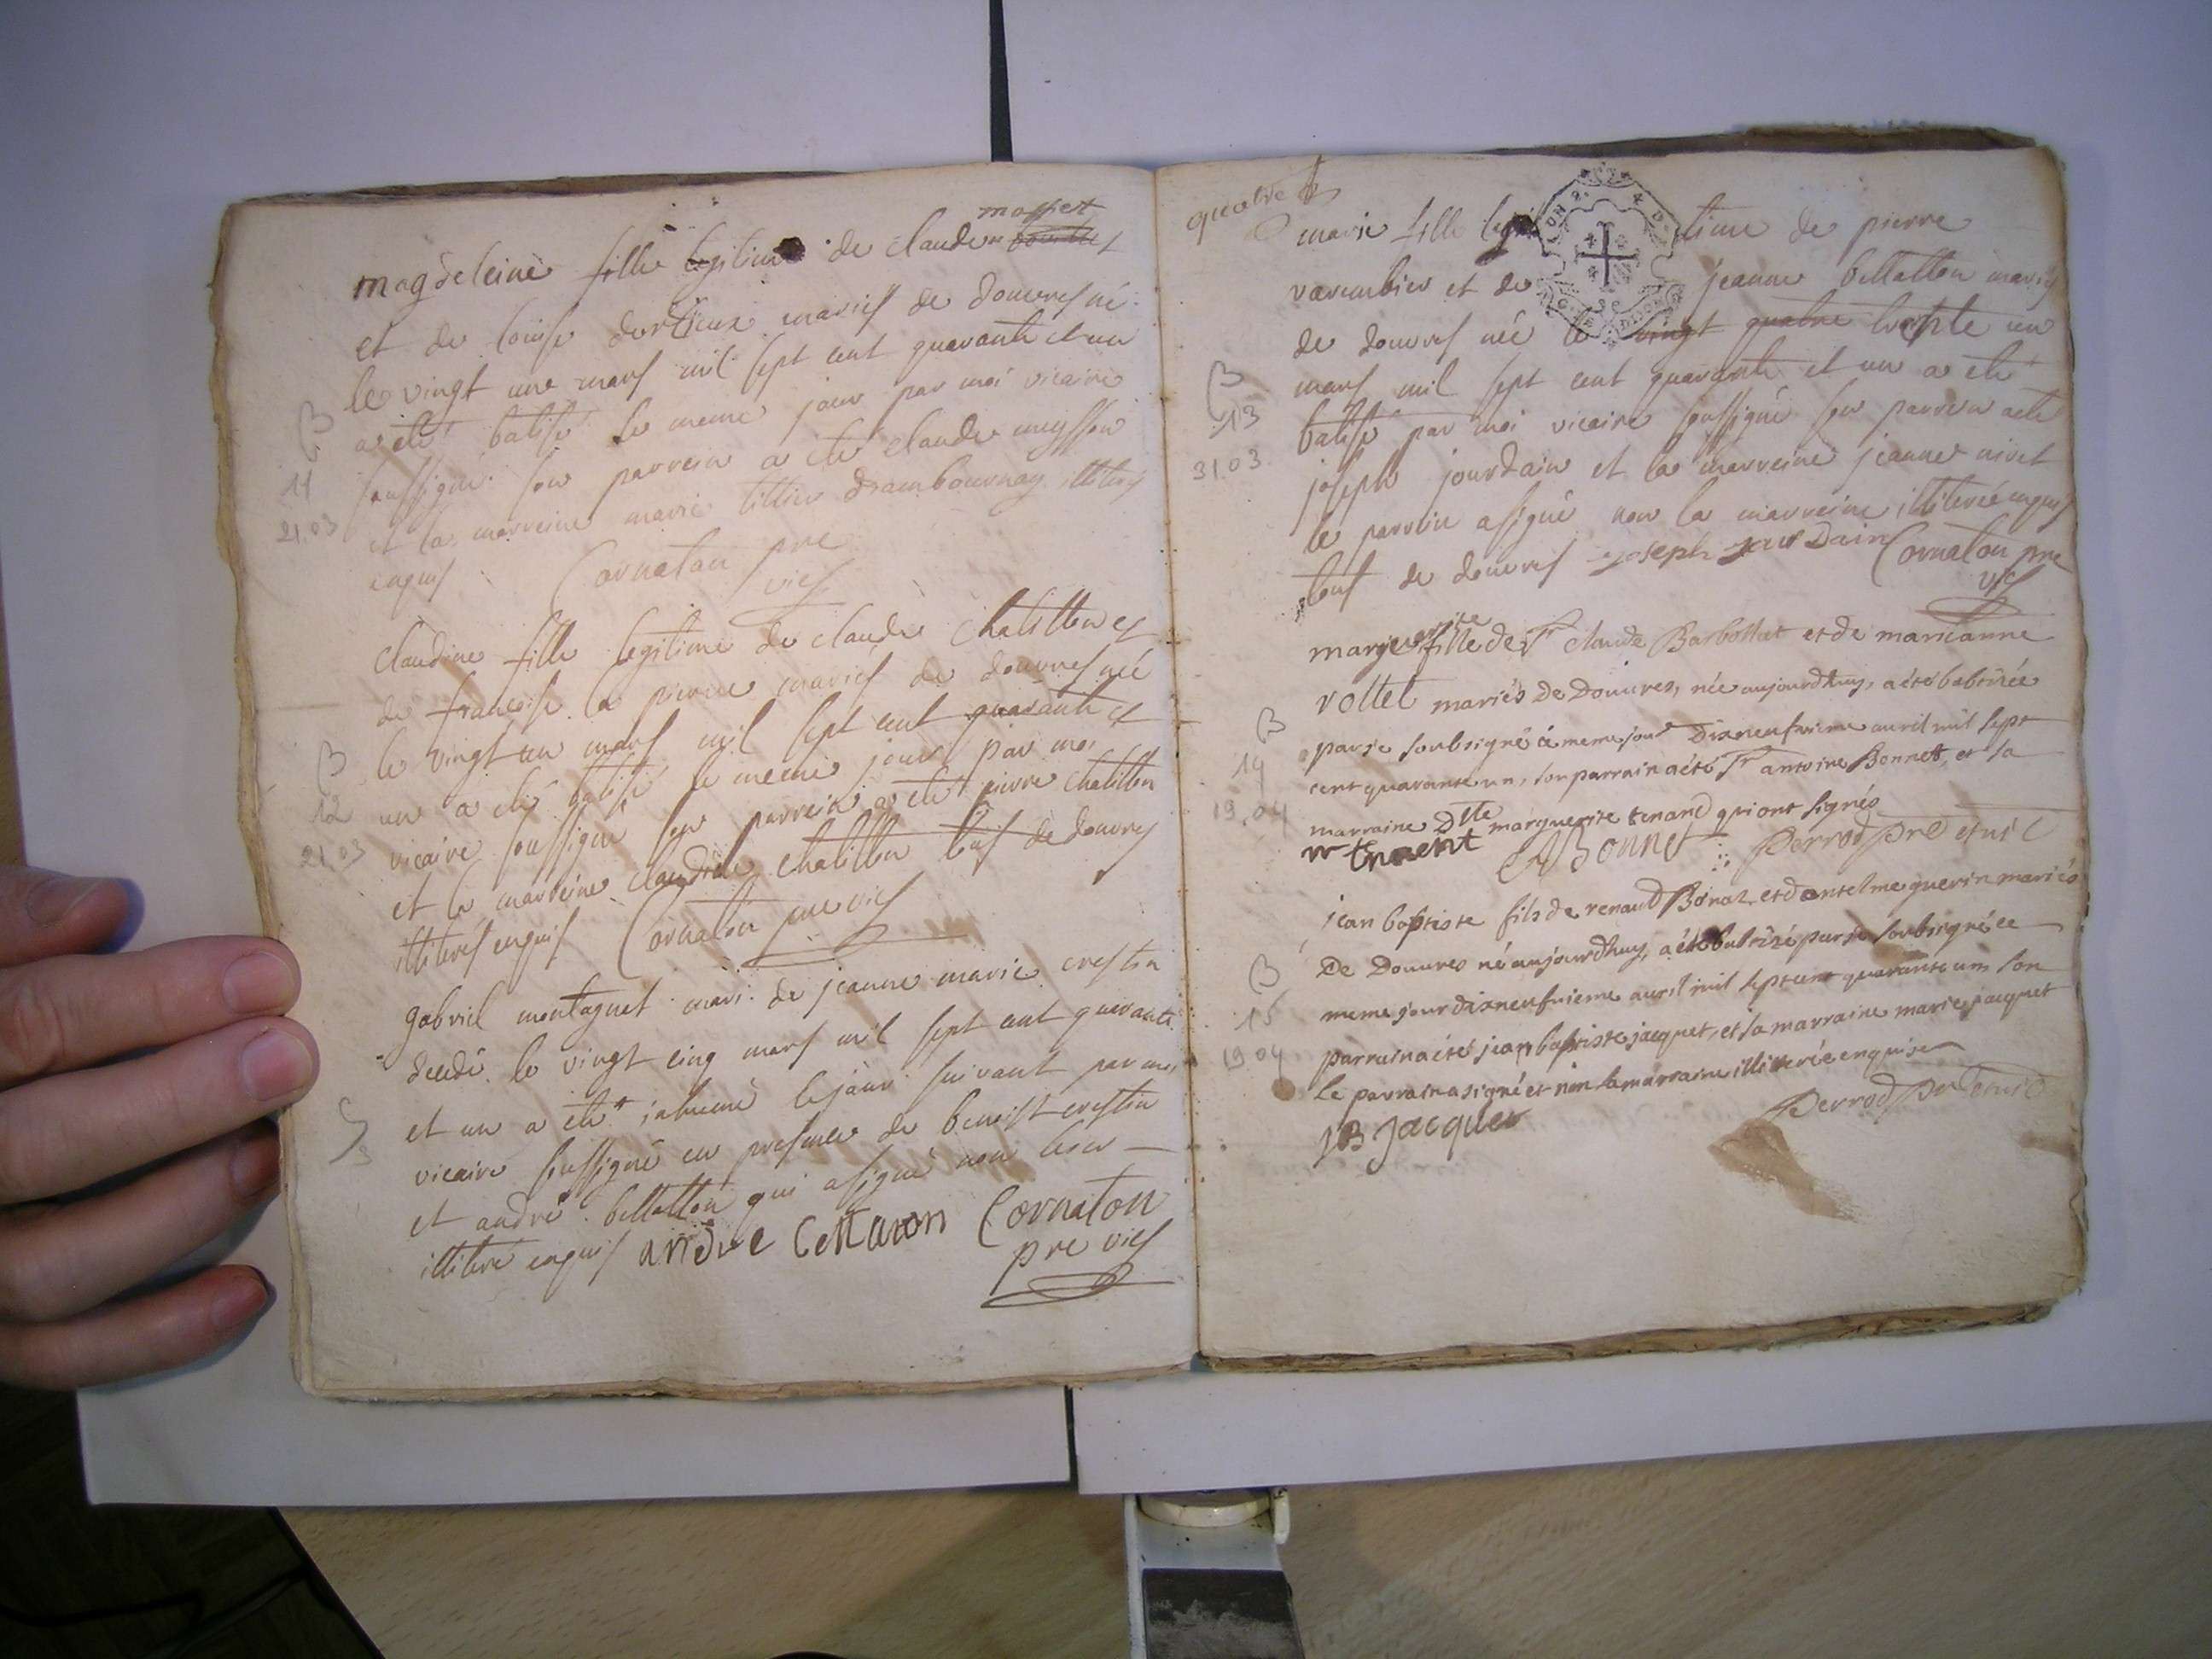 masset
magdeleine fille legitime de claude
et de louise dertieux mariés de douvres né
le vingt une mars mil sept cent quarante et un
a eté batisé le meme jour par moi vicaire
soussigné son parrein a eté claude
et la marreine marie tillier dambournay illiterés
enquis Cornaton pre
vics
B
11
21.03
claudine fille legitime de claude chatillon et
de francoise la pierre mariés de douvres née
le vingt un mars mil sept cent quarante et
un a eté batisé le meme jour par moi
vicaire soussigné son parrein a eté pierre chatillon
et la marreine claudine chatillon tous de douvres
illiterés enquis Cornaton pre vics
B
12
21.03
gabriel montagnet mari de jeanne marie crestin
decedé le vingt cinq mars mil sept cent quarante
et un a eté inhumé le jour suivant par moi
vicaire soussigné en presence de benoist crestin
et andré bellatton qui a signé non
illiteré enquis andre Cornaton
pre vics
S
3
quatre
marie fille legitime de pierre
varembier et de jeanne bellatton mariés
de douvres née le vingt quatre trente un
mars mil sept cent quarante et un a eté
batisé par moi vicaire soussigné son parrein a eté
joseph jourdain et la marreine jeanne nivet
le parrein a signé non la marreine illiterée enquis
tous de douvres joseph jourdain Cornaton pre
vics
B
13
31.03
marguerite fille de Sr claude Barbollat et de marieanne
vollet mariés de Douvres, née aujourdhuy, a été babtisée
par je soubsigné ce meme jour Dixneufvieme auril mil sept
cent quarante un, son parrain a été Sr antoine Bonnet, et sa
marraine Dlle marguerite tenand qui ont signés
m tenent A Bonnet Perrod pre et vic
B
14
19.04
jean baptiste fils de renaud Bonaz et dantelme guerin mariés
De Douvres né aujourdhuy, a été babtizé par je soubsigné ce
meme jour dixneufvieme auril mil sept cent quarante un, son
parrain a été jean baptiste jacquet, et sa marraine marie jacquet
le parrain a signé et non la marraine illitterée enquise
JB Jacquet Perrod pre et vic
B
15
19.04